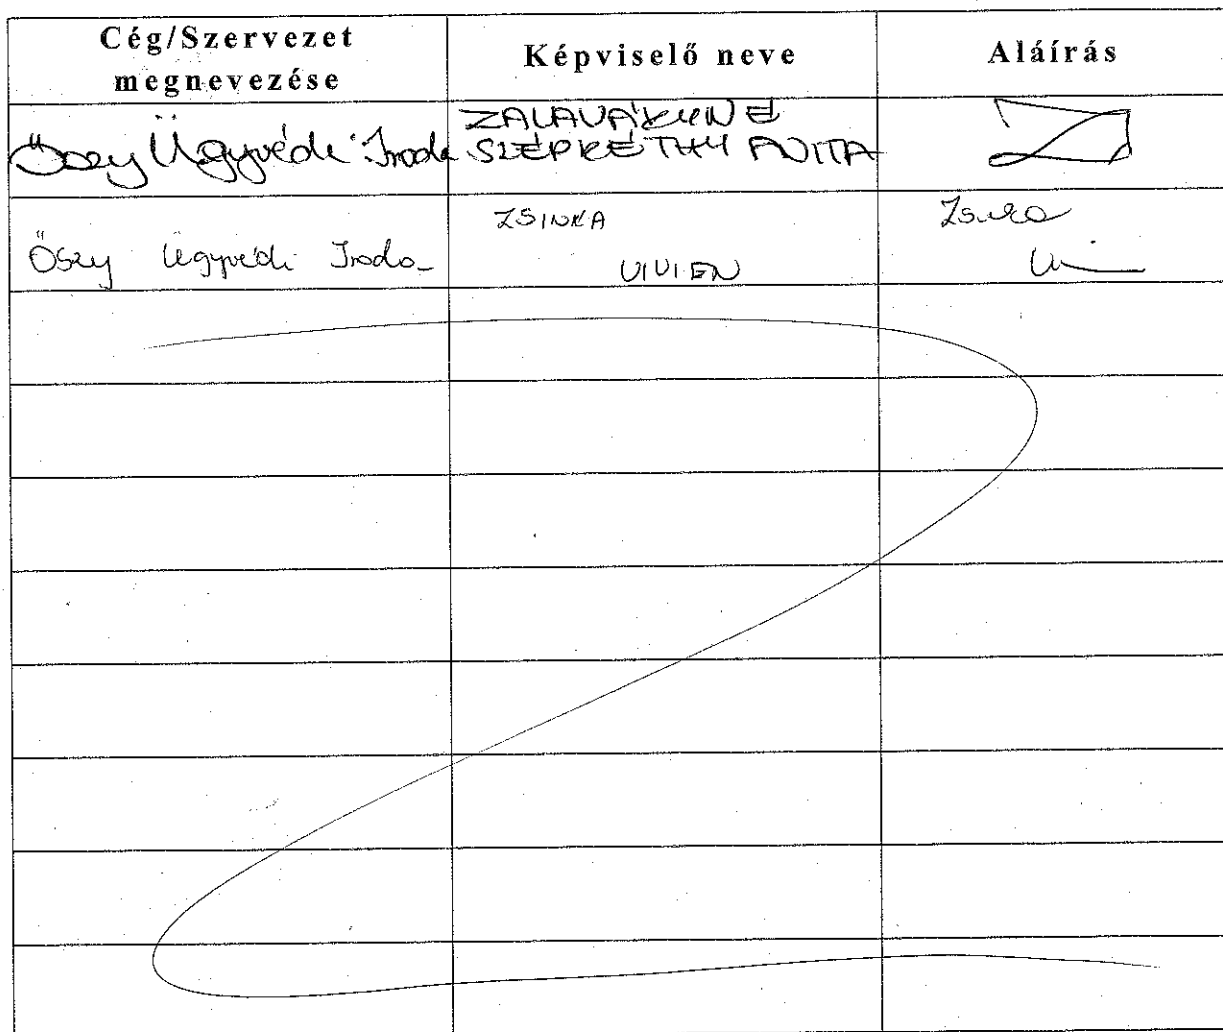 Cég/Szervezet
megnevezése
Képviselő neve
Aláírás
Őszy Ügyvédi Iroda
SZÉPRÉTHY ANITA
Őszy Ügyvédi Iroda
ZSINKA
VIVIEN
Zsinka